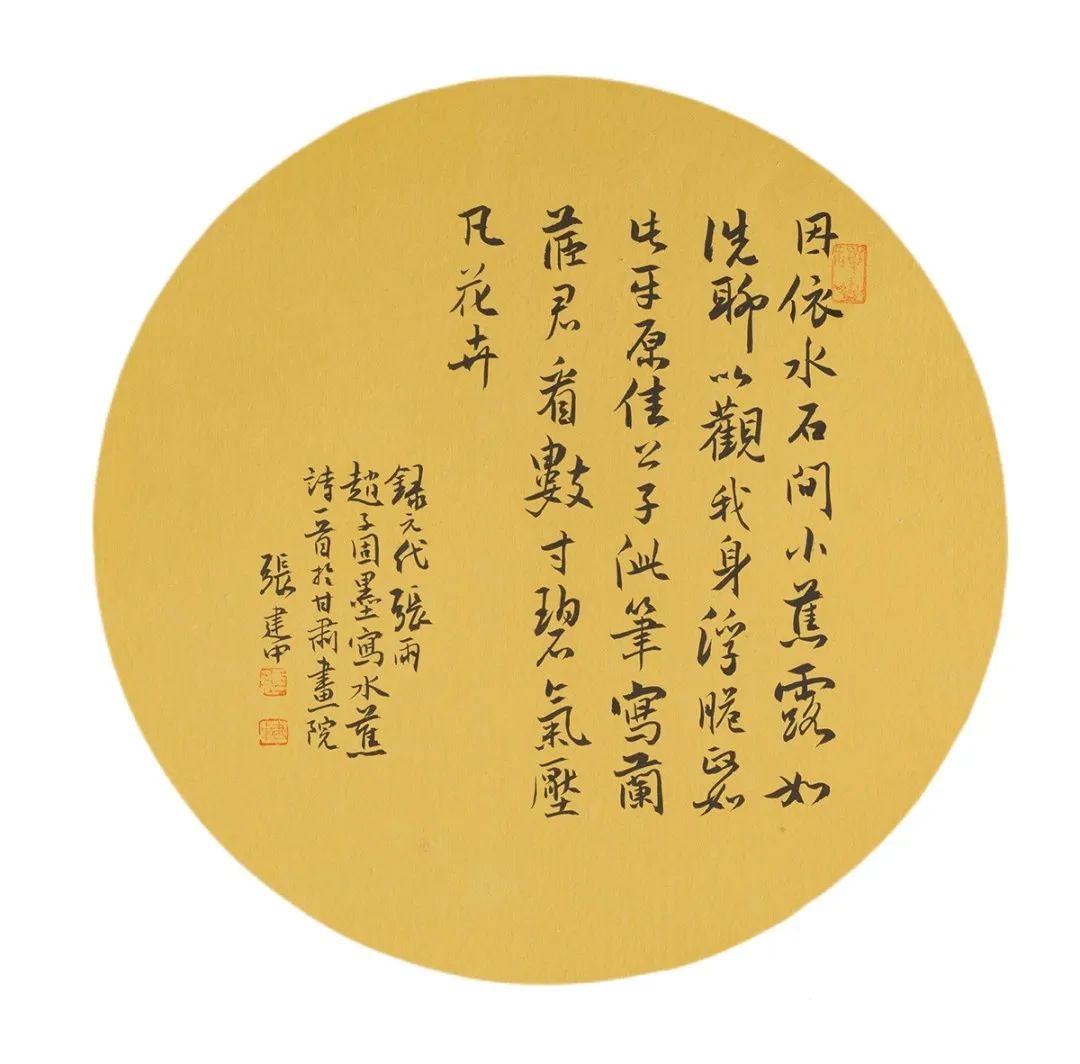 因依水石間小蕉露如
洗聊以觀我身浮脆正如
此平原佳公子泚筆寫蘭
茝君看數寸碧氣壓
凡花卉
錄元代張雨
趙子固墨寫水蕉
詩一首於甘肅畫院
張建